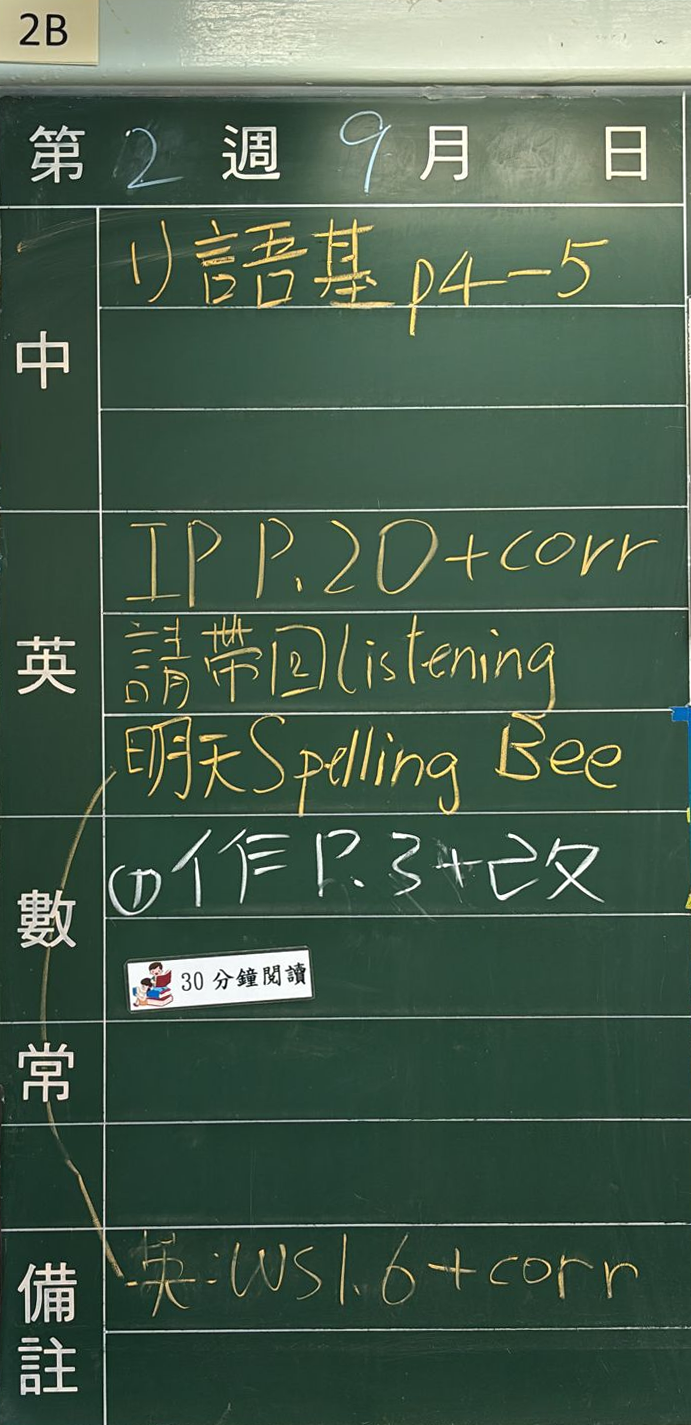 2B
第 2 週 9 月 日
中
1) 語基 p4-5
英
IP P.20+corr
請帶回listening
明天Spelling Bee
數
①作 P.3+改
30分鐘閱讀
常
備註
英:WS1.6+corr